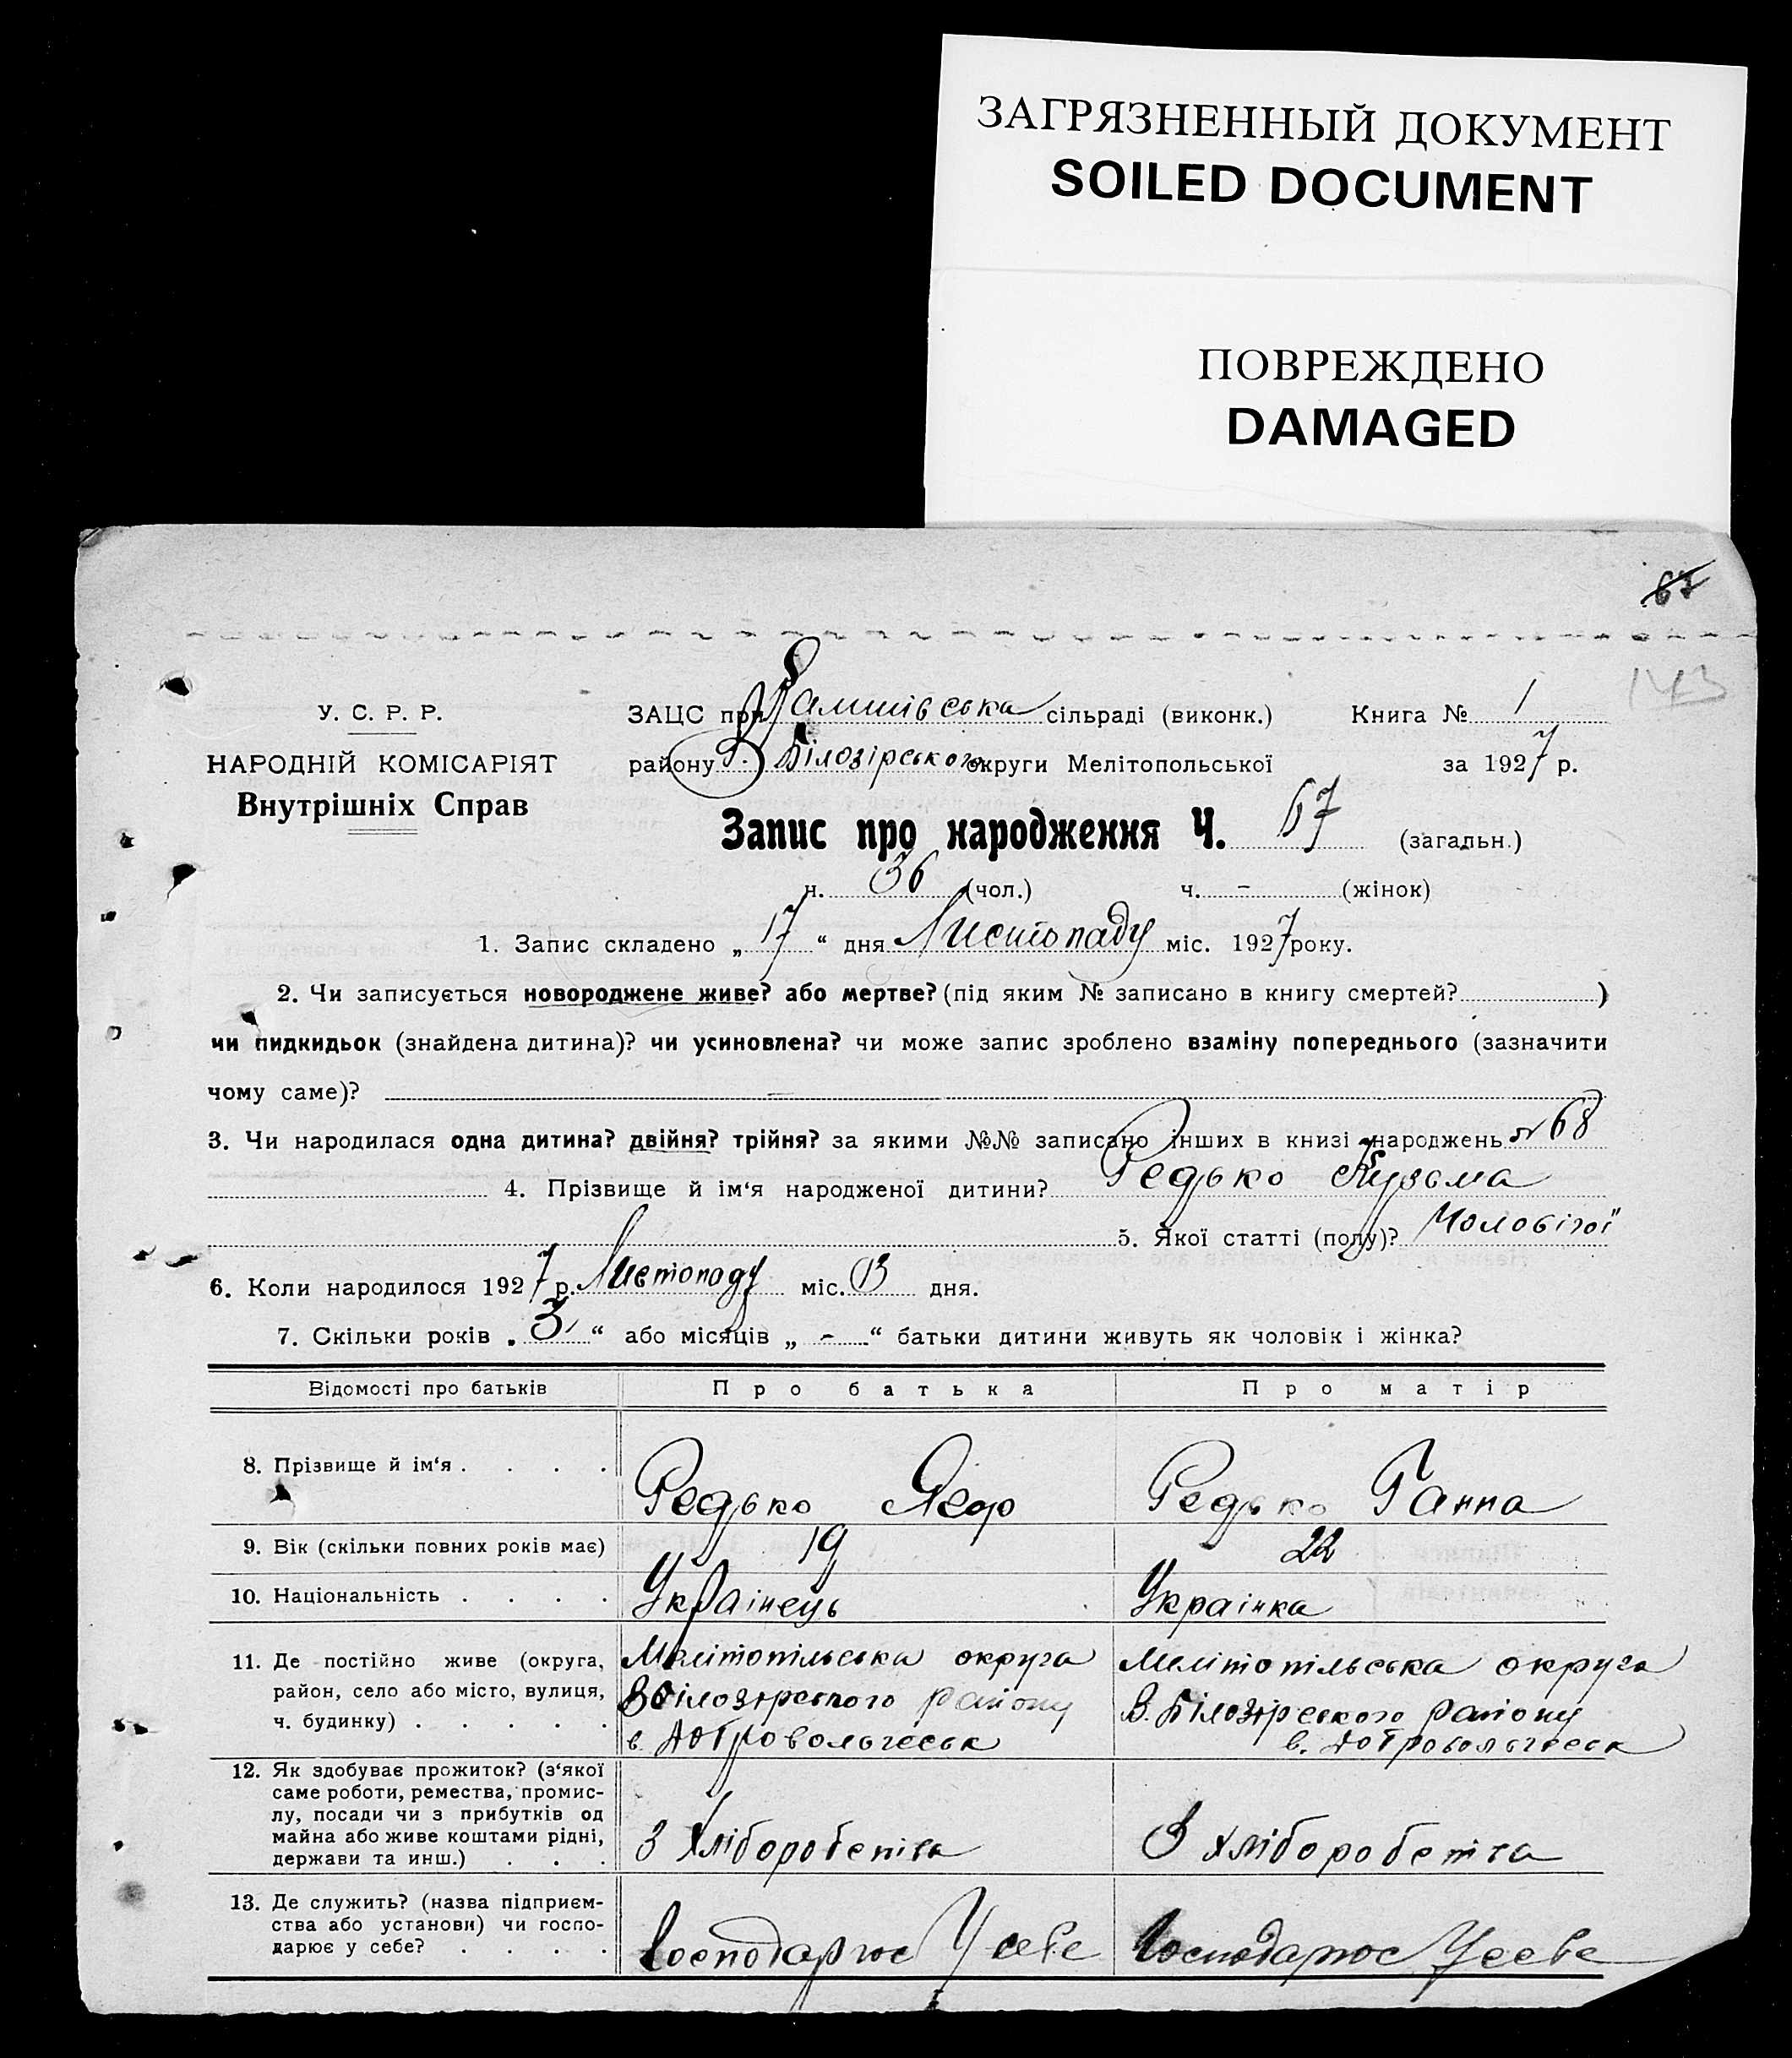 ЗАГРЯЗНЕННЫЙ ДОКУМЕНТ
SOILED DOCUMENT
ПОВРЕЖДЕНО
DAMAGED
67
143
У. С. Р. Р.
НАРОДНІЙ КОМІСАРІЯТ
Внутрішніх Справ
ЗАЦС при сільраді (виконк.) Книга № 1
району В. Білозірського округи Мелітопольської за 1927 р.
Запис про народження Ч. 67 (загальн.)
ч. 36 (чол.) ч. - (жінок)
1. Запис складено „ 17 “ дня Листопаду міс. 1927 року.
2. Чи записується новороджене живе? або мертве? (під яким № записано в книгу смертей? )
чи пидкидьок (знайдена дитина)? чи усиновлена? чи може запис зроблено взаміну попереднього (зазначити
чому саме)? —
3. Чи народилася одна дитина? двійня? трійня? за якими №№ записано інших в книзі народжень № 68
4. Прізвище й ім'я народженої дитини? Редько Кузьма
5. Якої статті (полу)? Чоловічої
6. Коли народилося 1927 р. Листопаду міс. 13 дня.
7. Скільки років „ 3 “ або місяців „ - “ батьки дитини живуть як чоловік і жінка?
Відомості про батьків Про батька Про матір
8. Прізвище й ім'я . . . . Редько Редько Ганна
9. Вік (скільки повних років має) 19 22
10. Національність . . . . Українець Українка
11. Де постійно живе (округа, Мелітопільська округа Мелітопільська округа
район, село або місто, вулиця, В Білозірського району В. Білозірського району
ч. будинку) . . . . .
12. Як здобуває прожиток? (з'якої
саме роботи, ремества, промис-
лу, посади чи з прибутків од
майна або живе коштами рідні, З З
держави та инш.) . . .
13. Де служить? (назва підприєм-
ства або установи) чи госпо-
дарює у себе? . . . . Господарює У себе Господарює У себе